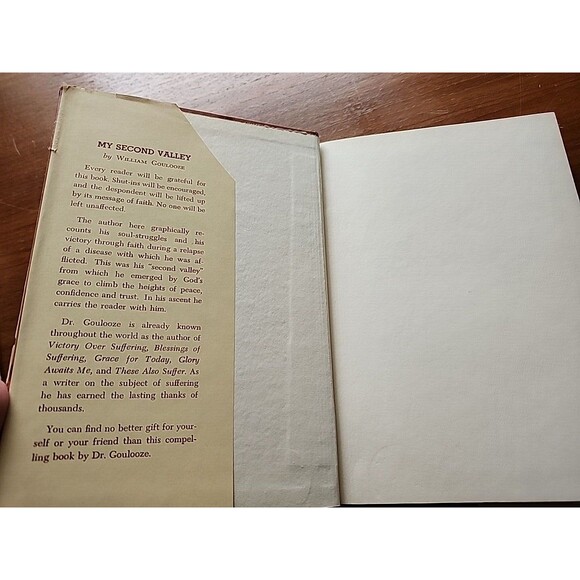 MY SECOND VALLEY
by WILLIAM GOULOOZE
Every reader will be grateful for
this book. Shut-ins will be encouraged,
and the despondent will be lifted up
by its message of faith. No one will be
left unaffected.
The author here graphically re-
counts his soul-struggles and his
victory through faith during a relapse
of a disease with which he was af-
flicted. This was his "second valley"
from which he emerged by God's
grace to climb the heights of peace,
confidence and trust. In his ascent he
carries the reader with him.
Dr. Goulooze is already known
throughout the world as the author of
Victory Over Suffering, Blessings of
Suffering, Grace for Today, Glory
Awaits Me, and These Also Suffer. As
a writer on the subject of suffering
he has earned the lasting thanks of
thousands.
You can find no better gift for your-
self or your friend than this compel-
ling book by Dr. Goulooze.